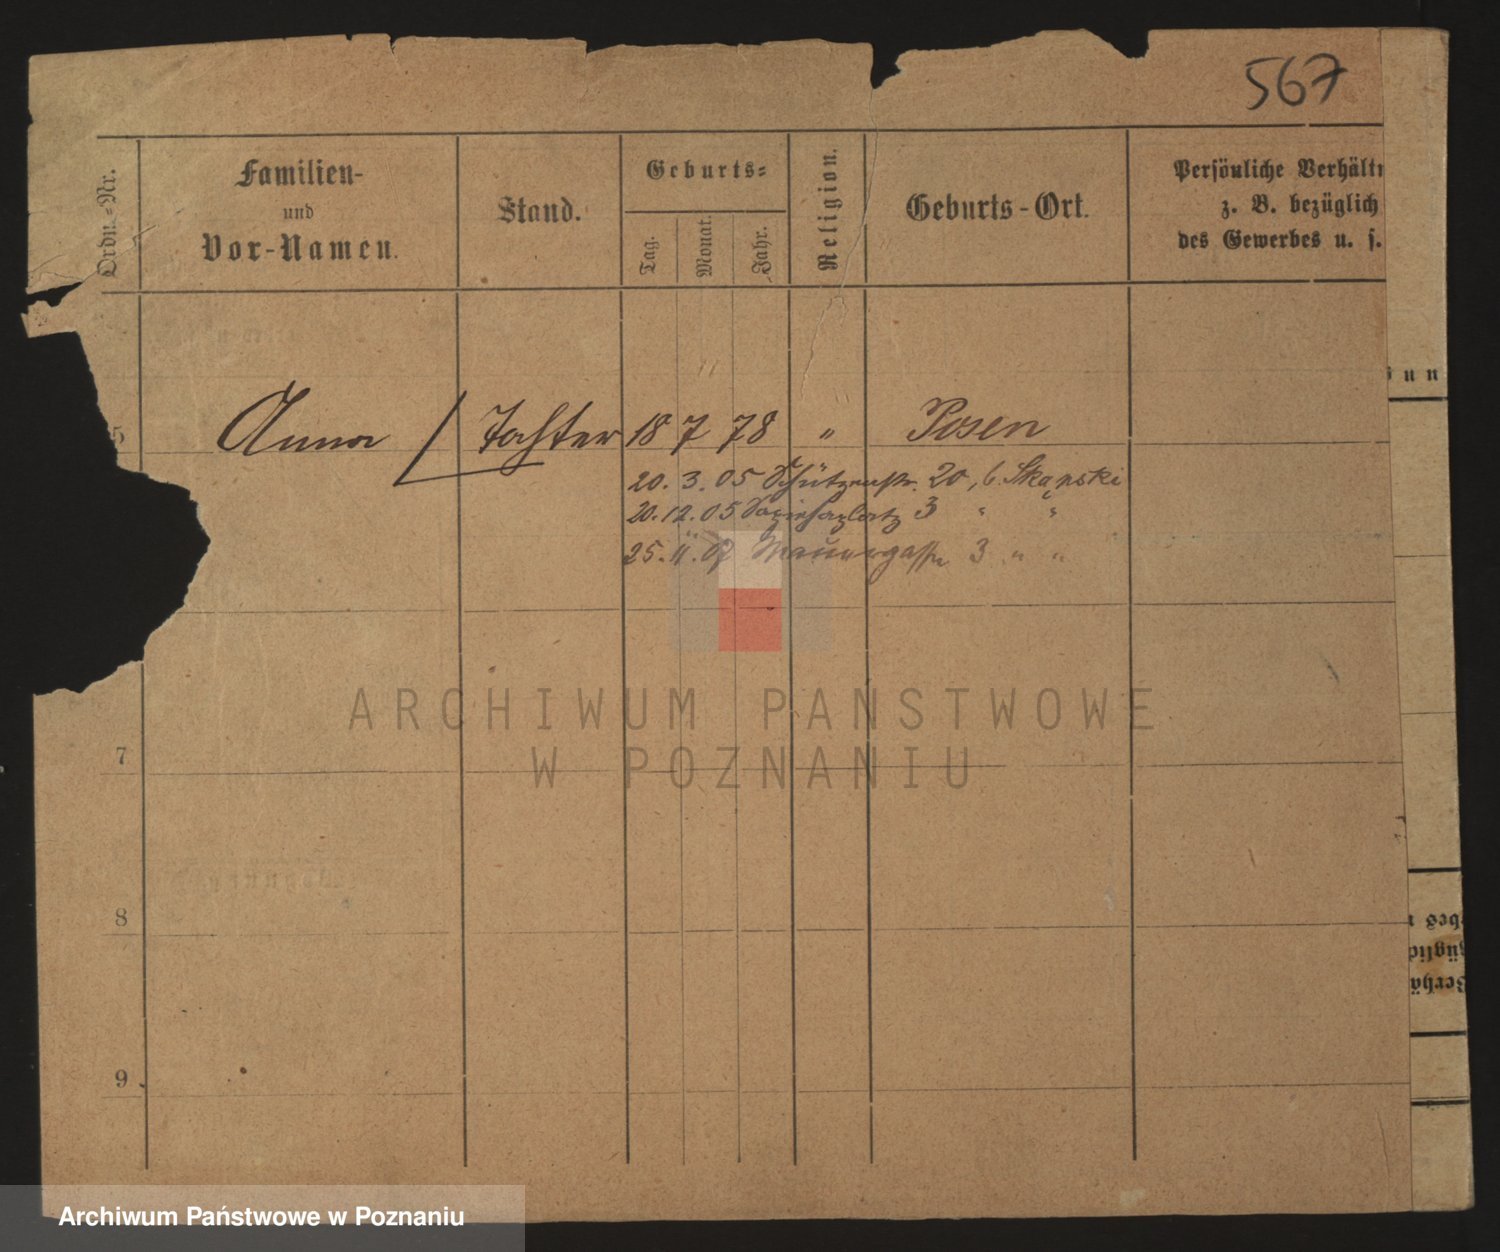 567
Ordn.-Nr.
Familien-
und
Vor-Namen.
Stand.
Geburts-
Tag.
Monat.
Jahr.
Religion.
Geburts-Ort.
Persönliche Verhältn
z. B. bezüglich
des Gewerbes u. s.
5 Anna Tochter 18 7 78 " Posen
20. 3. 05 Schützenstr. 20, b. Skąpski
20. 12. 05 Sapiehaplatz 3 " "
25. 11. 07 Mauergasse 3 " "
7
8
9
ARCHIWUM PAŃSTWOWE
W POZNANIU
Archiwum Państwowe w Poznaniu